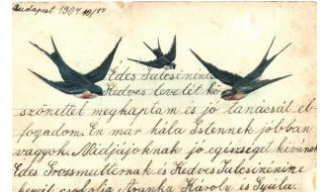 Budapest 1904 10/17
Édes Julcsi néni!
Kedves levelét kö
szönettel megkaptam és jó tanácsát el
fogadom. Én már hála Istennek jobban
vagyok. Mindjájoknak jó egésséget kívánok
Édes Grossmutternak és Kedves Julcsi néninek
kezeit csókolja Aranka Károly és Gyula.